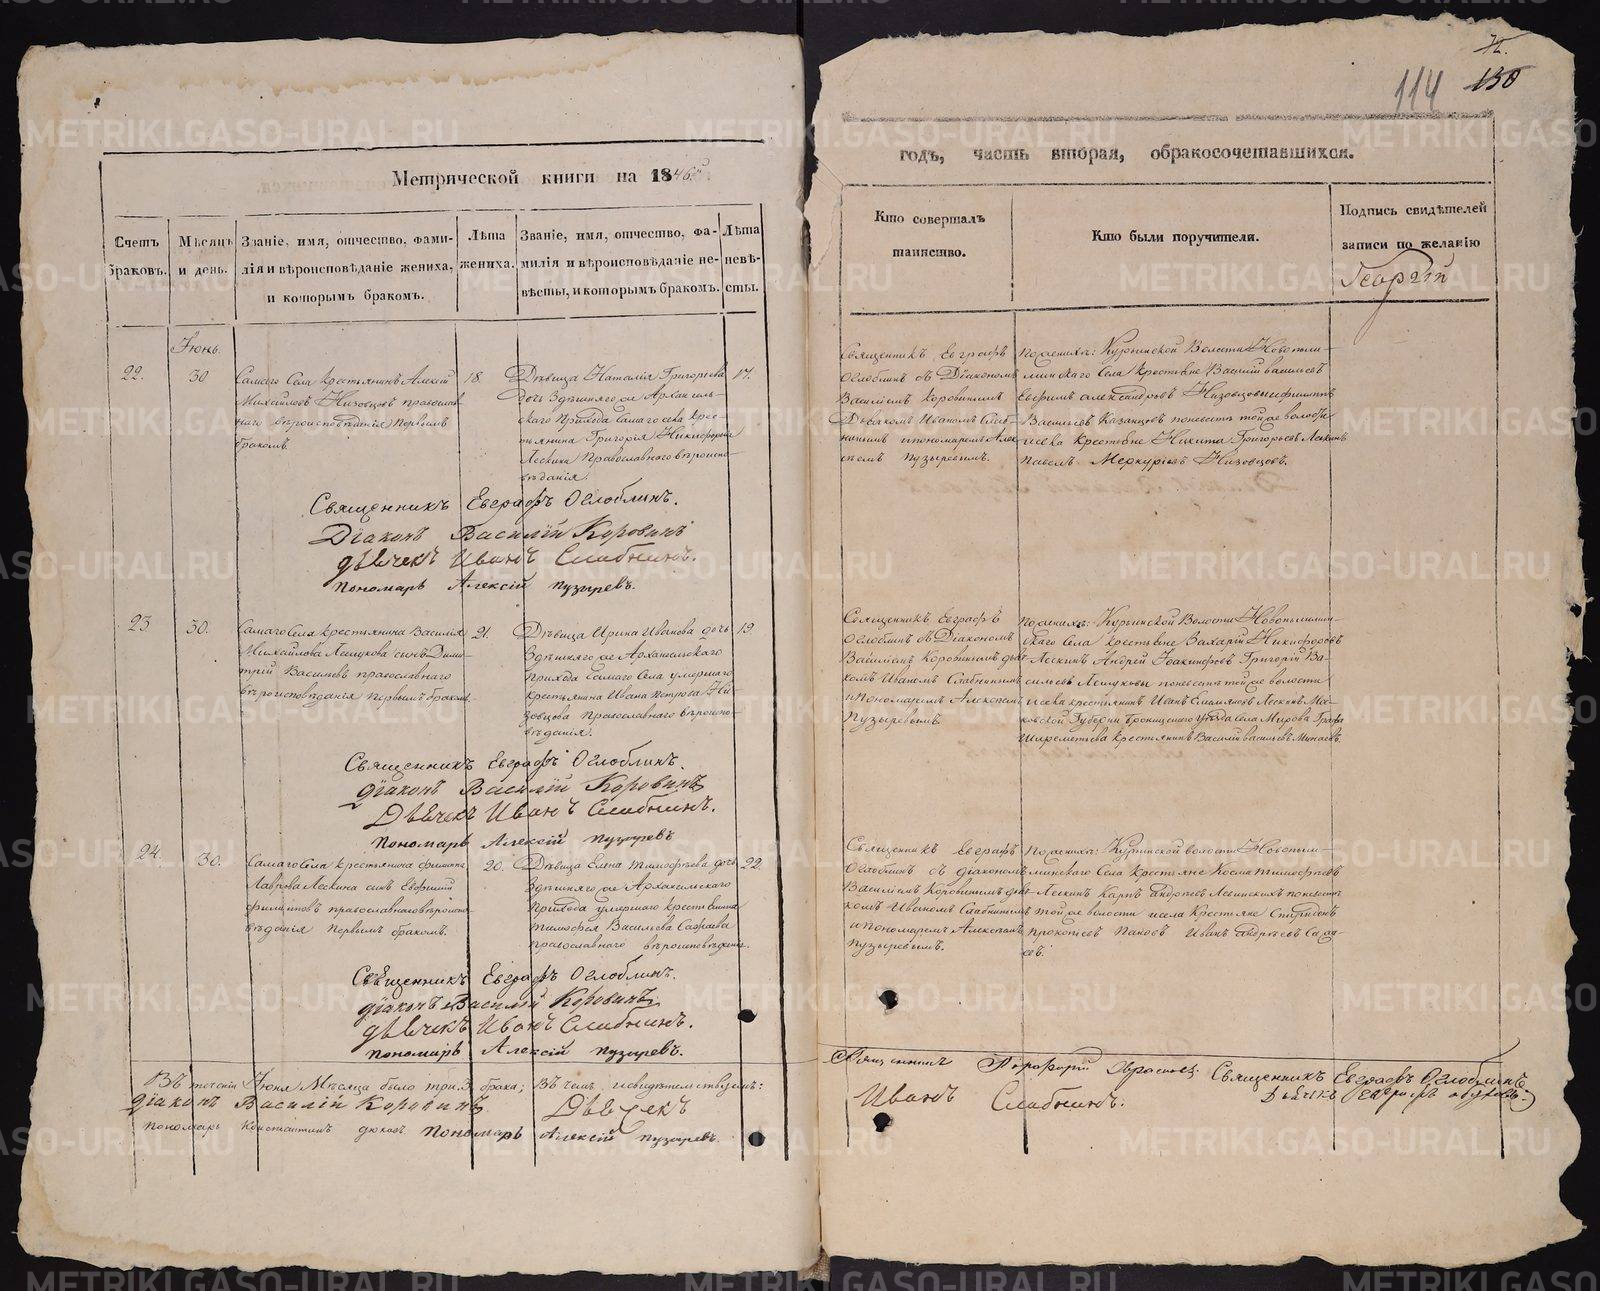 114 130
Метрической книги на 1846й
годъ, часть вторая, обракосочетавшихся.
Счетъ браковъ.
Мѣсяцъ и день.
Званіе, имя, отчество, фами-
лія и вѣроисповѣданіе жениха,
и которымъ бракомъ.
Лѣта
жениха.
Званіе, имя, отчество, фа-
милія и вѣроисповѣданіе не-
вѣсты, и которымъ бракомъ.
Лѣта
невѣ-
сты.
Кто совершалъ
таинство.
Кто были поручители.
Подпись свидѣтелей
записи по желанію
Георгій
Іюнь.
22.
30
Самаго Села крестьянинъ Алексій
Михайловъ Низовцовъ православ
наго вѣроисповѣданія первымъ
бракомъ.
18.
Дѣвица Наталія Григорьева
дочь здѣшняго же Архангель-
скаго Прихода самаго села крес-
тьянина Григорія Никифорова
Лескина Православнаго вѣроиспо-
вѣданія.
17.
Священникъ Евграфъ
Оглоблинъ съ Діакономъ
Василіемъ Коровинымъ
Дьячкомъ Иваномъ Слаб-
нинымъ и пономаремъ Алек
сіемъ Пузыревымъ.
По женихѣ: Куринской Волости Новопыш-
минскаго Села крестьяне Василій Васильевъ
Евфимъ Александровъ Низовцовы и филиппъ
Васильевъ Казанцовъ по невестѣ той же волости
и села Крестьяне Никита Григорьевъ Лескинъ
Павелъ Меркурьевъ Низовцовъ.
Священникъ Евграфъ Оглоблинъ.
Діаконъ Василій Коровинъ
дьячекъ Иванъ Слабнинъ.
пономарь Алексій пузыревъ.
23.
30.
Самаго Села крестьянина Василія
Михайлова сынъ Дими-
трій Васильевъ православнаго
вѣроисповѣданія первымъ бракомъ.
21.
Дѣвица Ирина Иванова дочь
здѣшняго же Архангельскаго
прихода самаго Села умершаго
крестьянина Ивана Петрова Ни
зовцова православнаго вѣроиспо-
вѣданія.
19.
Священникъ Евграфъ
Оглоблинъ съ Діакономъ
Василіемъ Коровинымъ дьяч-
комъ Иваномъ Слабнинымъ
и Пономаремъ Алексіемъ
Пузыревымъ.
По женихѣ: Куринской Волости Новопышмин-
скаго Села крестьяне Захарій Никифоровъ
Лескинъ Андрей Іоакимовъ Григорій Ва-
сильевъ по невестѣ той же волости
и села крестьянинъ Иванъ Лескинъ Мос-
ковской Губерніи Бронницкаго уѣзда села Графа
Шереметьева крестьянинъ Василій Васильевъ
Священникъ Евграфъ Оглоблинъ.
діаконъ Василій Коровинъ
Дьячекъ Иванъ Слабнинъ.
пономарь Алексій пузыревъ
24.
30.
Самаго Села крестьянина филиппа
Лаврова Лескина сынъ
филиповъ православнаго вѣроиспо-
вѣданія первымъ бракомъ.
20.
Дѣвица Елена Тимофѣева дочь
здѣшняго же Архангельскаго
прихода умершаго крестьянина
Тимофея Васильева
православнаго вѣроисповѣданія.
22.
Священникъ Евграфъ
Оглоблинъ съ діакономъ
Василіемъ Коровинымъ дьяч-
комъ Иваномъ Слабнинымъ
и пономаремъ Алексіемъ
Пузыревымъ.
По женихѣ: Куринской волости Новопыш-
минскаго Села крестьяне Косма Тимофеевъ
Лескинъ Карпъ Андреевъ по невестѣ
той же волости и села Крестьяне Спиридонъ
Прокопіевъ Пановъ Иванъ Андреевъ
Священникъ Евграфъ Оглоблинъ.
діаконъ Василій Коровинъ
дьячекъ Иванъ Слабнинъ.
пономарь Алексій пузыревъ.
Въ теченіи Іюня Мѣсяца было три 3 брака; Въ чемъ и свидѣтельствуемъ:
Священникъ Порфирій Священникъ Евграфъ Оглоблинъ
діаконъ Василій Коровинъ Дьячекъ Иванъ Слабнинъ. Дьячекъ
пономарь Константинъ пономарь Алексій пузыревъ.
METRIKI.GASO-URAL.RU